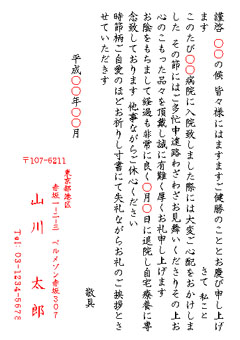 謹啓 〇〇の候 皆々様にはますますご健勝のこととお慶び申し上げ
ます
さて 私こと
このたび〇〇病院に入院致しました際には大変ご心配をおかけしま
した その節にはご多忙中遠路わざわざお見舞いくださりその上お
心のこもった品々を頂戴し誠に有難く厚くお礼申し上げます
お陰をもちまして経過も非常に良く〇月〇日に退院し自宅療養に専
念致しております 他事ながらご休心ください
時節柄ご自愛のほどお祈りし寸書にて失礼ながらお礼のご挨拶とさ
せていただきます
敬具
平成〇〇年〇〇月
〒107-6211
東京都港区
赤坂一-二-三 ベルメゾン赤坂307
山川 太郎
Tel: 03-1234-5678